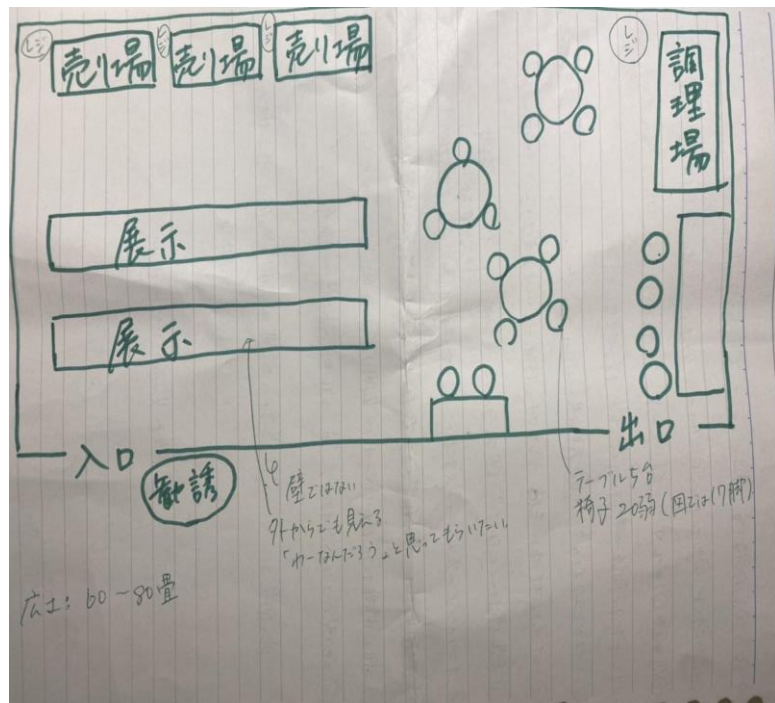 レジ
売り場
レジ
売り場
レジ
売り場
レジ
調理場
展示
展示
入口
出口
勧誘
壁ではない
外からでも見える
「わーなんだろう」と思ってもらいたい
テーブル5台
椅子20弱(図では17脚)
広さ:60〜80畳